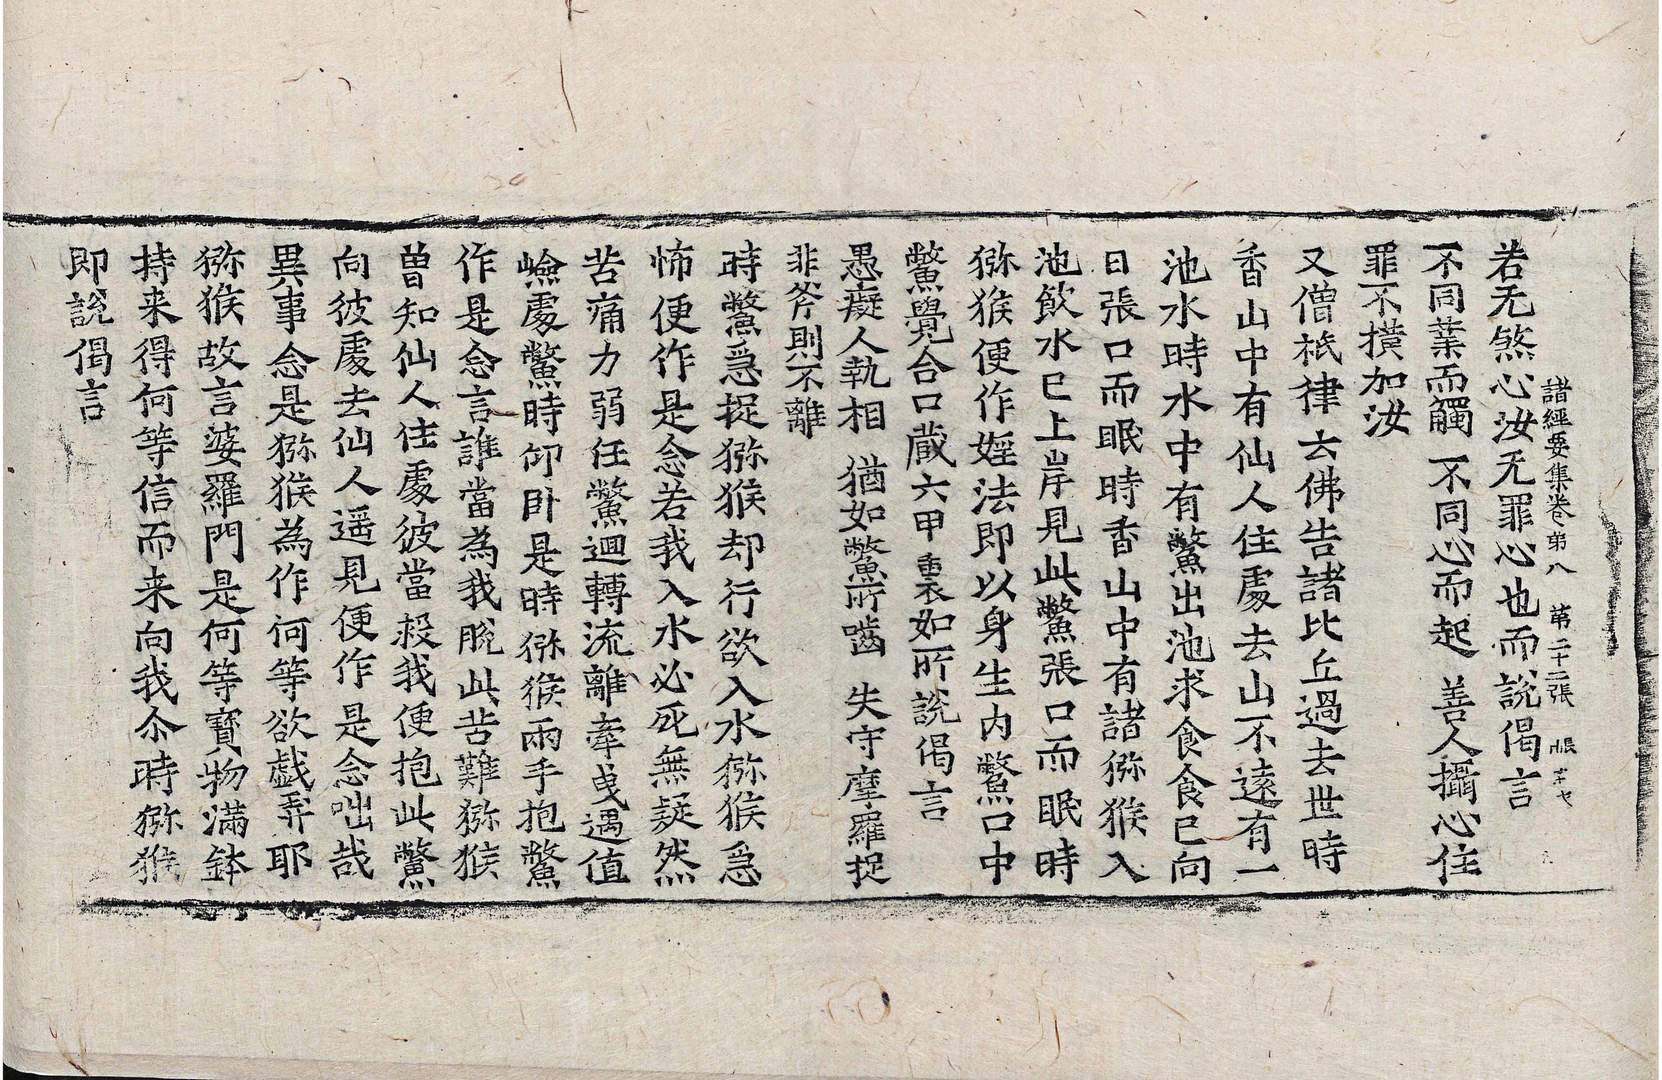 諸經要集卷第八　第二十二張　帳
若无煞心汝无罪心也而說偈言
不同葉而觸　不同心而起　善人攝心住
罪不横加汝
又僧祇律云佛告諸比丘過去世時
香山中有仙人住處去山不遠有一
池水時水中有鱉出池求食食已向
日張口而眠時香山中有諸獼猴入
池飲水已上岸見此鱉張口而眠時
獼猴便作婬法即以身生内鱉口中
鱉覺合口藏六甲裏如所說偈言
愚癡人執相　猶如鱉所嚙　失守摩羅捉
非斧則不離
時鱉急捉獼猴却行欲入水獼猴急
怖便作是念若我入水必死無疑然
苦痛力弱任鱉迴轉流離牽曳遇值
嶮處鱉時仰卧是時獼猴兩手抱鱉
作是念言誰當為我脫此苦難獼猴
曾知仙人住處彼當殺我便抱此鱉
向彼處去仙人遥見便作是念咄哉
異事念是獼猴為作何等欲戲弄耶
獼猴故言婆羅門是何等寳物滿鉢
持来得何等信而来向我尒時獼猴
即說偈言